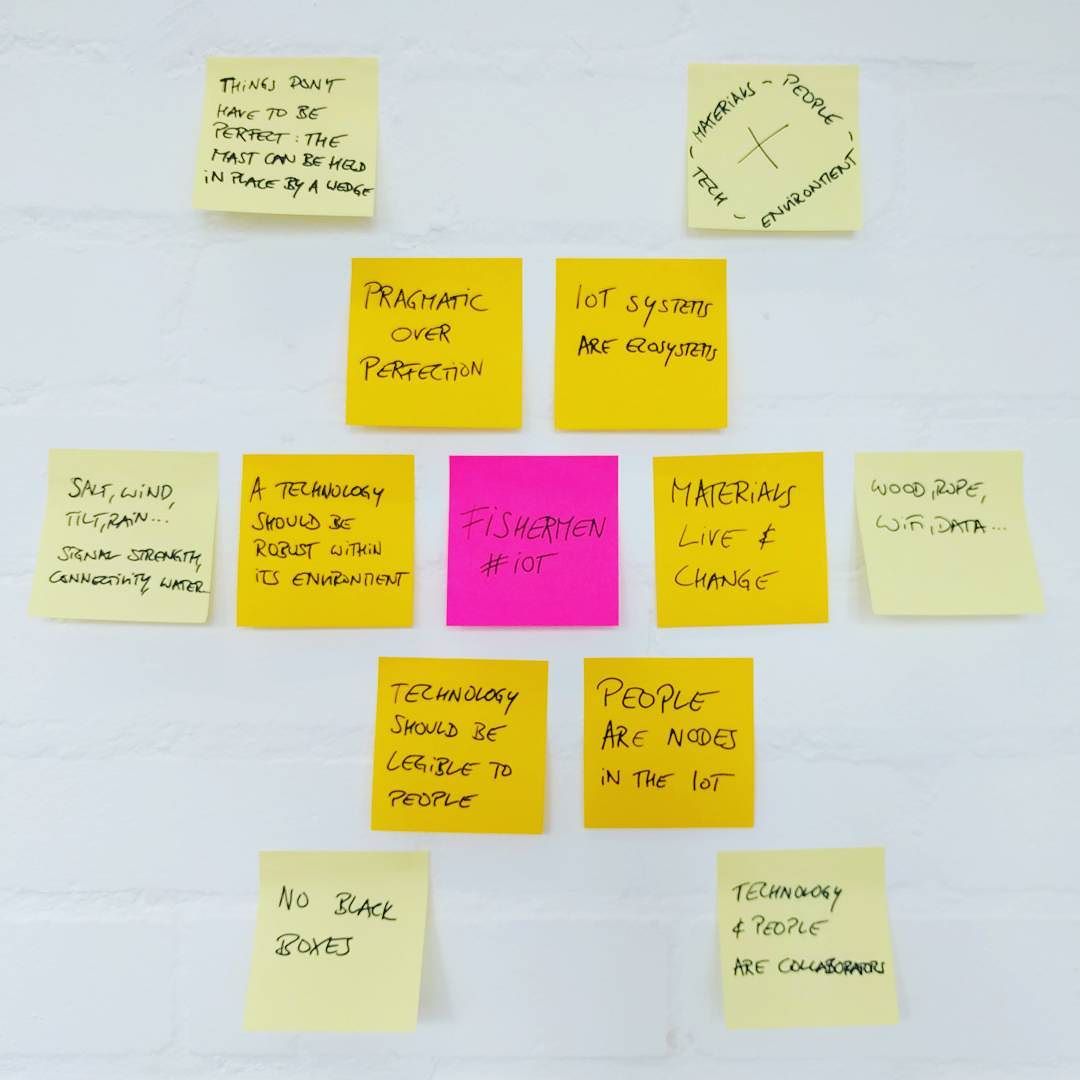 THINGS DON'T
HAVE TO BE
PERFECT: THE
MAST CAN BE HELD
IN PLACE BY A WEDGE
MATERIALS - PEOPLE -
ENVIRONMENT - TECH -
PRAGMATIC
OVER
PERFECTION
IOT SYSTEMS
ARE ECOSYSTEMS
SALT, WIND,
TILT, RAIN...
SIGNAL STRENGTH,
CONNECTIVITY, WATER...
A TECHNOLOGY
SHOULD BE
ROBUST WITHIN
ITS ENVIRONMENT
FISHERMEN
#IOT
MATERIALS
LIVE &
CHANGE
WOOD, ROPE,
WIFI, DATA...
TECHNOLOGY
SHOULD BE
LEGIBLE TO
PEOPLE
PEOPLE
ARE NODES
IN THE IOT
NO BLACK
BOXES
TECHNOLOGY
& PEOPLE
ARE COLLABORATORS